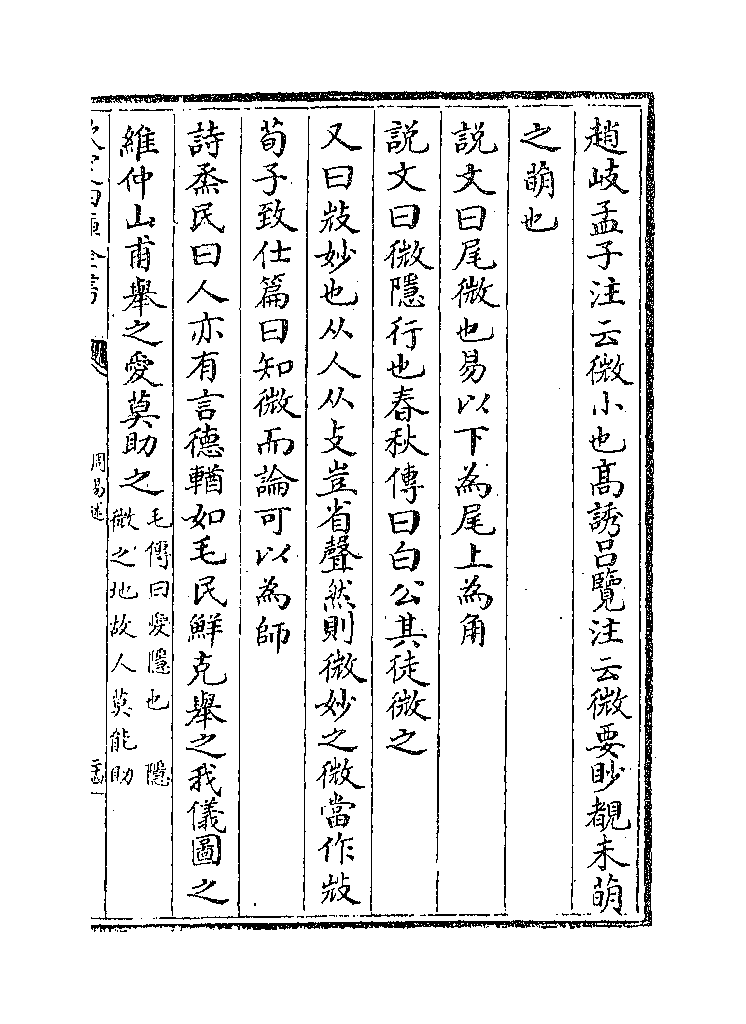 趙岐孟子注云微小也髙誘吕覽注云微要眇覩未萌
之萌也
説文曰尾微也易以下為尾上為角
説文曰微隱行也春秋傳曰白公其徒微之
又曰㪜妙也从人从攴豈省聲然則微妙之微當作㪜
荀子致仕篇曰知微而論可以為師
詩烝民曰人亦有言德輶如毛民鮮克舉之我儀圖之
維仲山甫舉之愛莫助之
毛傳曰愛隱也　隱
微之地故人莫能助
周易述